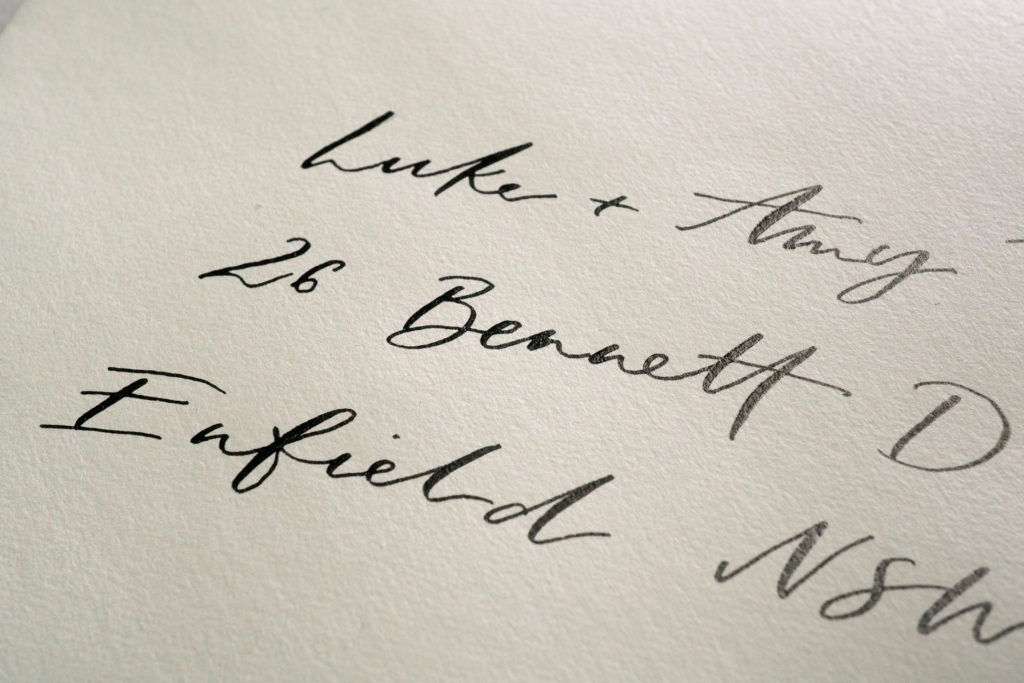 Luke + Amy
26 Bennett D
Enfield NSW